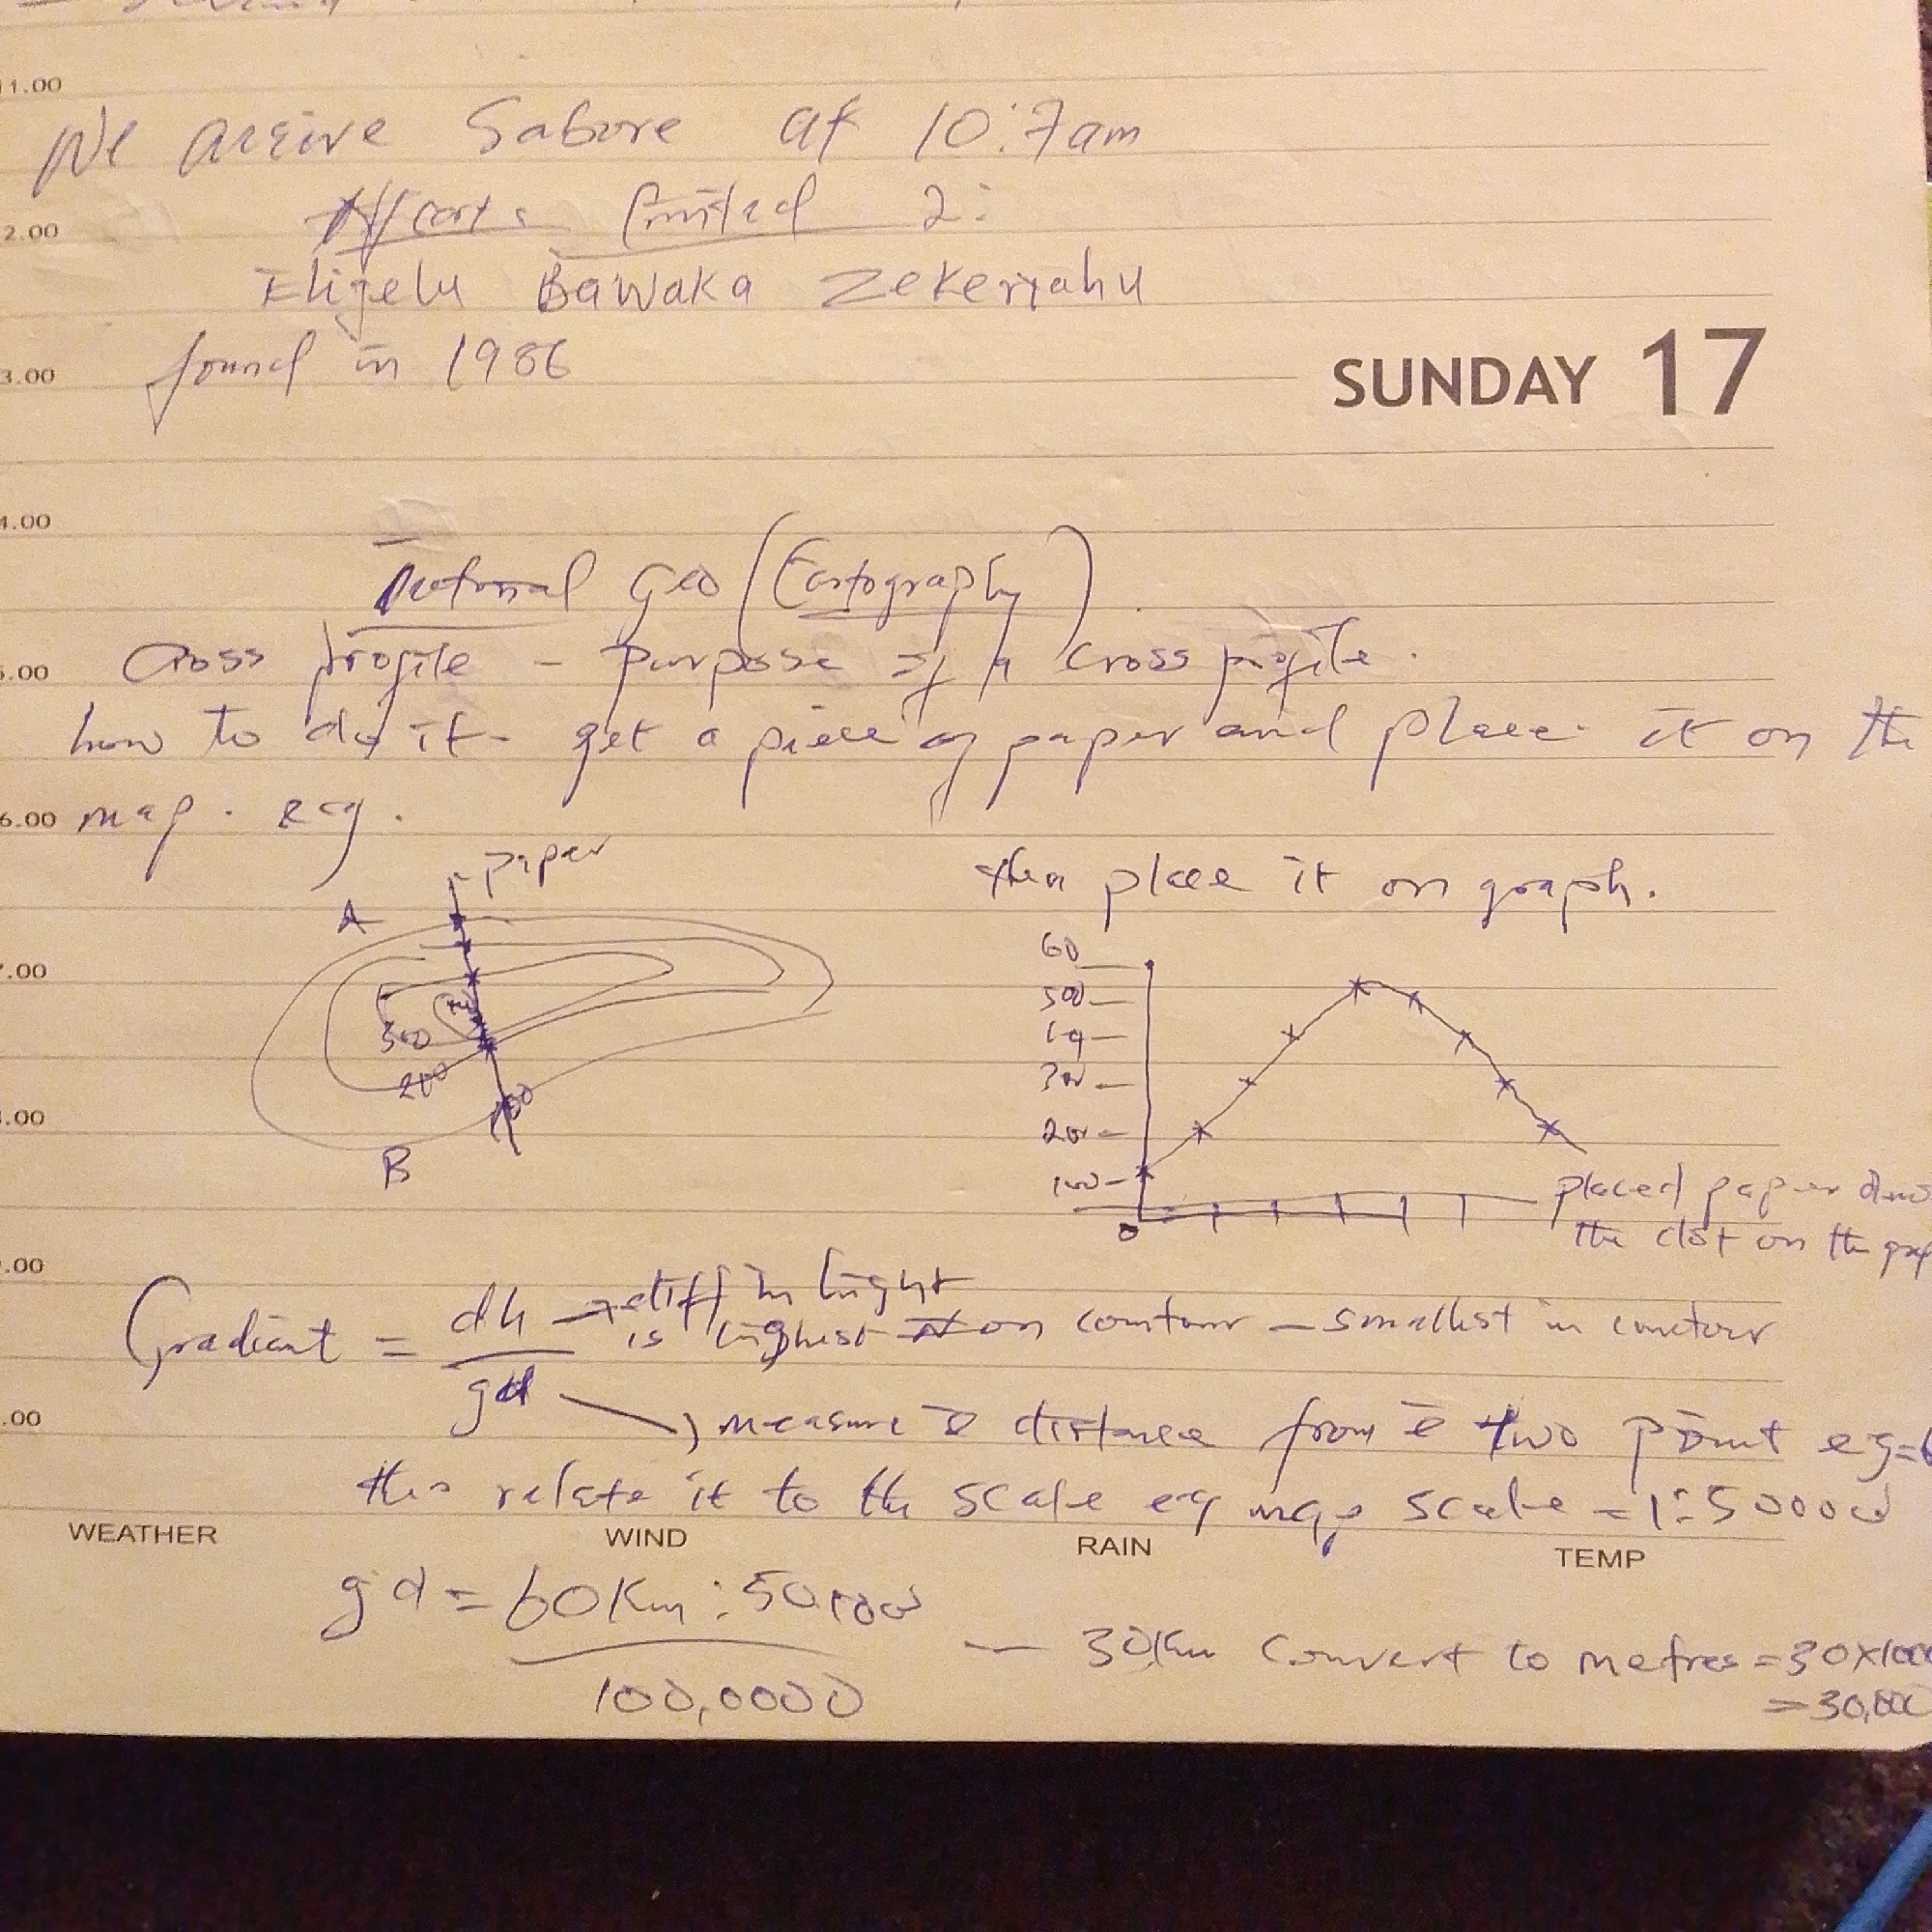 11.00
We arrive Sabore at 10:7am
2.00
limited 2:
Eligelu Bawaka Zekeriahu
found in 1986
3.00
SUNDAY 17
4.00
Geo (Cartography)
5.00
Cross profile - purpose of a cross profile.
how to do it - get a piece of paper and place it on the
6.00
map. eg.
paper
then place it on graph.
A
60
7.00
500
300
300
200
100
8.00
200
B
100
placed paper
0
the dot on the
9.00
diff in height
Gradient = dh is highest on contour - smallest in contour
gd
.00
measure distance from two point eg=6
then relate it to the scale eg map scale = 1:50000
WEATHER WIND RAIN TEMP
gd = 60Km:50,000
100,0000
- 30Km convert to metres = 30x1000
= 30,000